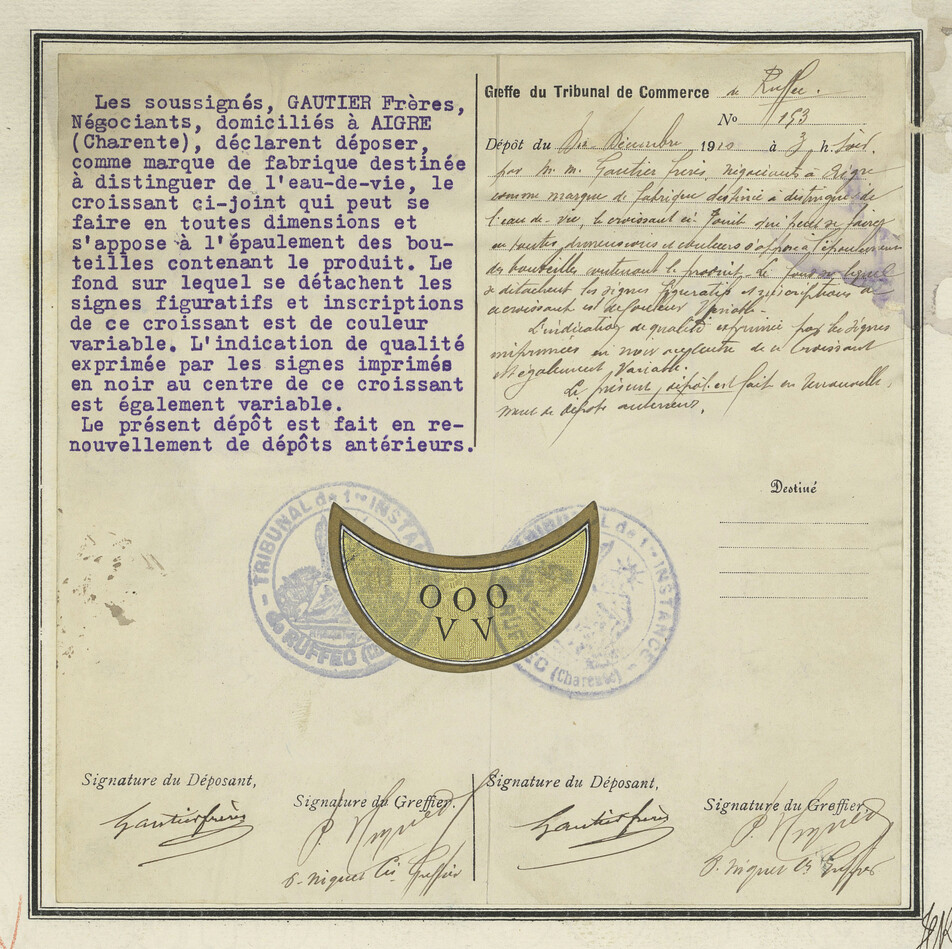 Les soussignés, GAUTIER Frères,
Négociants, domiciliés à AIGRE
(Charente), déclarent déposer,
comme marque de fabrique destinée
à distinguer de l'eau-de-vie, le
croissant ci-joint qui peut se
faire en toutes dimensions et
s'appose à l'épaulement des bou-
teilles contenant le produit. Le
fond sur lequel se détachent les
signes figuratifs et inscriptions
de ce croissant est de couleur
variable. L'indication de qualité
exprimée par les signes imprimés
en noir au centre de ce croissant
est également variable.
Le présent dépôt est fait en re-
nouvellement de dépôts antérieurs.
Greffe du Tribunal de Commerce de Ruffec.
No 193
Dépôt du Décembre 1910 à 3 h. soir.
par M. M. Gautier frères, négociants à Aigre
comme marque de fabrique destiné à distinguer de
l'eau-de-vie, le croissant ci-joint qui peut se faire
en toutes dimensions et couleurs s'appose à l'épaulement
des bouteilles contenant le produit. Le fond sur lequel
se détachent les signes figuratifs et inscriptions de
ce croissant est de couleur variable.
L'indication de qualité exprimée par les signes
imprimées en noir au centre de ce croissant
est également variable.
Le présent dépôt est fait en renouvelle-
ment de dépôts antérieurs.
Destiné
TRIBUNAL de 1re INSTANCE
de RUFFEC
TRIBUNAL de 1re INSTANCE
(Charente)
OOO
V V
Signature du Déposant,
Signature du Greffier.
Gautier frères
Signature du Déposant,
Signature du Greffier,
Gautier frères